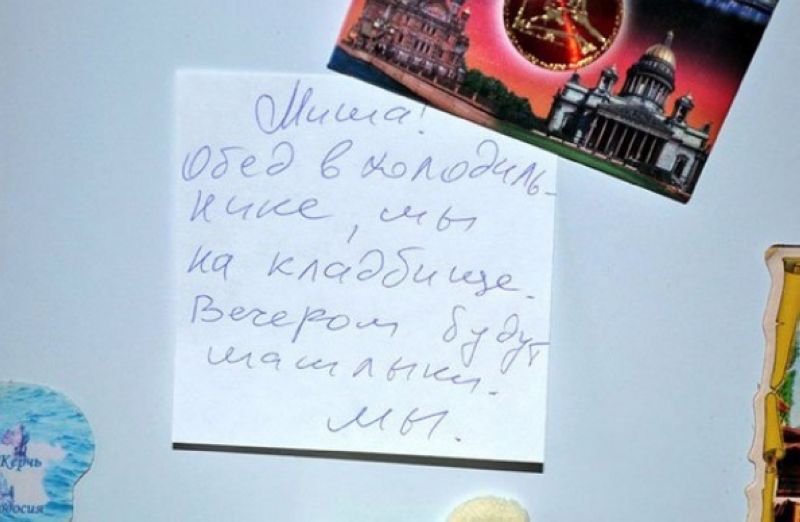 Миша!
Обед в холодиль-
нике, мы
на кладбище.
Вечером будут
шашлыки.
мы.
Керчь